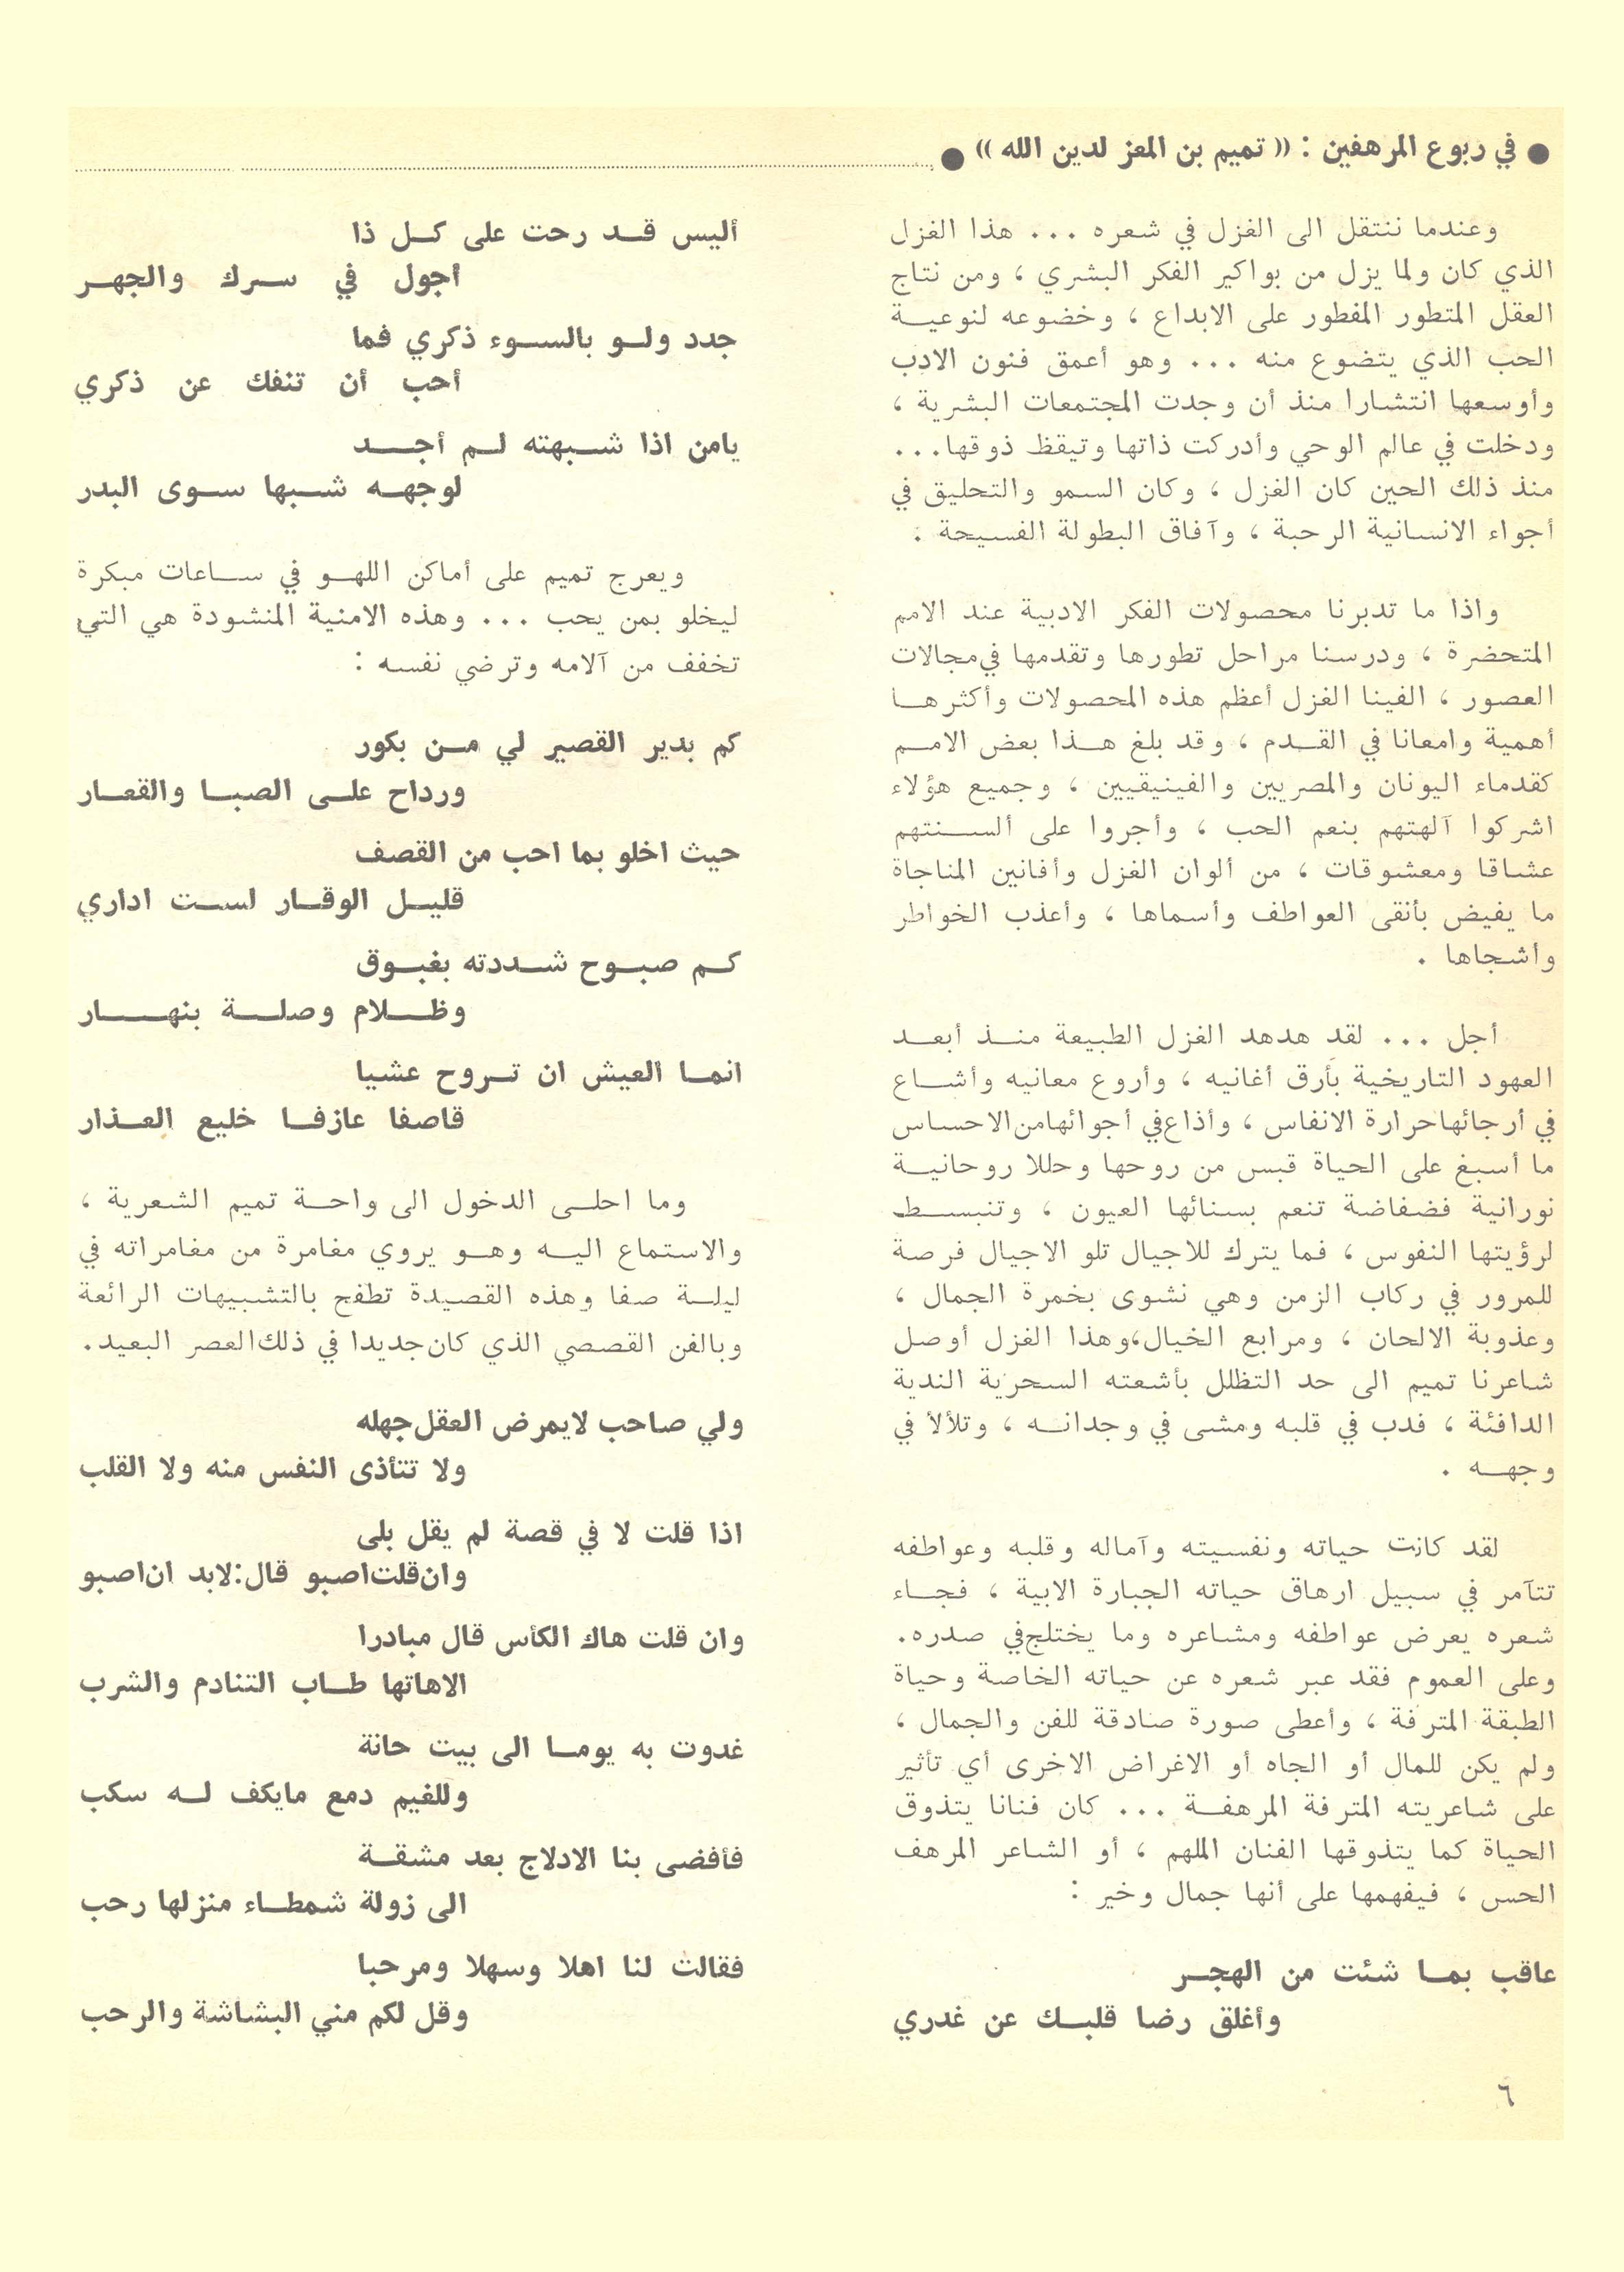 ● في ربوع المرهفين : (( تميم بن المعز لدين الله )) ●
وعندما ننتقل الى الغزل في شعره ... هذا الغزل
الذي كان ولما يزل من بواكير الفكر البشري ، ومن نتاج
العقل المتطور المفطور على الابداع ، وخضوعه لنوعيــة
الحب الذي يتضوع منه ... وهو أعمق فنون الادب
وأوسعها انتشارا منذ أن وجدت المجتمعات البشرية ،
ودخلت في عالم الوحي وأدركت ذاتها وتيقظ ذوقها...
منذ ذلك الحين كان الغزل ، وكان السمو والتحليق في
أجواء الانسانية الرحبة ، وآفاق البطولة الفسيحة .
واذا ما تدبرنا محصولات الفكر الادبية عند الامم
المتحضرة ، ودرسنا مراحل تطورها وتقدمها في مجالات
العصور ، الفينا الغزل أعظم هذه المحصولات وأكثرهــا
أهمية وامعانا في القــدم ، وقد بلغ هــذا بعض الامــم
كقدماء اليونان والمصريين والفينيقيين ، وجميع هؤلاء
اشركوا آلهتهم بنعم الحب ، وأجروا على ألســنتهم
عشاقا ومعشوقات ، من ألوان الغزل وأفانين المناجاة
ما يفيض بأنقى العواطف وأسماها ، وأعذب الخواطر
وأشجاها .
أجل ... لقد هدهد الغزل الطبيعة منــذ أبعــد
العهود التاريخية بأرق أغانيه ، وأروع معانيه وأشــاع
في أرجائها حرارة الانفاس ، وأذاع في أجوائها من الاحساس
ما أسبغ على الحياة قبس من روحها وحللا روحانيــة
نورانية فضفاضة تنعم بسنائها العيون ، وتنبســط
لرؤيتها النفوس ، فما يترك للاجيال تلو الاجيال فرصة
للمرور في ركاب الزمن وهي نشوى بخمرة الجمال ،
وعذوبة الالحان ، ومرابع الخيال،وهذا الغزل أوصل
شاعرنا تميم الى حد التظلل بأشعته السحرية الندية
الدافئة ، فدب في قلبه ومشى في وجدانــه ، وتلألأ في
وجهــه .
لقد كانت حياته ونفسيته وآماله وقلبه وعواطفه
تتآمر في سبيل ارهاق حياته الجبارة الابية ، فجــاء
شعره يعرض عواطفه ومشاعره وما يختلج في صدره.
وعلى العموم فقد عبر شعره عن حياته الخاصة وحياة
الطبقة المترفة ، وأعطى صورة صادقة للفن والجمال ،
ولم يكن للمال أو الجاه أو الاغراض الاخرى أي تأثير
على شاعريته المترفة المرهفــة ... كان فنانا يتذوق
الحياة كما يتذوقها الفنان الملهم ، أو الشاعر المرهف
الحس ، فيفهمها على أنها جمال وخير :
عاقب بمــا شئت من الهجــر
وأغلق رضا قلبــك عن غدري
أليس قــد رحت على كــل ذا
أجول في ســرك والجهــر
جدد ولــو بالســوء ذكري فما
أحب أن تنفك عن ذكري
يامن اذا شــبهته لــم أجــد
لوجهــه شــبها ســوى البدر
ويعرج تميم على أماكن اللهــو في ســاعات مبكرة
ليخلو بمن يحب ... وهذه الامنية المنشودة هي التي
تخفف من آلامه وترضي نفسه :
كم بدير القصير لي مــن بكور
ورداح علــى الصبــا والقعــار
حيث اخلو بما احب من القصف
قليــل الوقــار لســت اداري
كــم صبــوح شــددته بغبــوق
وظــلام وصلــة بنهــار
انمــا العيش ان تــروح عشيا
قاصفا عازفــا خليع العــذار
وما احلــى الدخول الى واحــة تميم الشعرية ،
والاستماع اليــه وهــو يروي مغامرة من مغامراته في
ليلــة صفا وهذه القصيدة تطفح بالتشبيهات الرائعة
وبالفن القصصي الذي كان جديدا في ذلك العصر البعيد.
ولي صاحب لايمرض العقل جهله
ولا تتأذى النفس منه ولا القلب
اذا قلت لا في قصة لم يقل بلى
وان قلت اصبو قال:لابد ان اصبو
وان قلت هاك الكأس قال مبادرا
الاهاتها طــاب التنادم والشرب
غدوت به يومــا الى بيت حانة
وللغيم دمع مايكف لــه سكب
فأفضى بنا الادلاج بعد مشقــة
الى زولة شمطــاء منزلها رحب
فقالت لنا اهلا وسهلا ومرحبا
وقل لكم مني البشاشة والرحب
٦